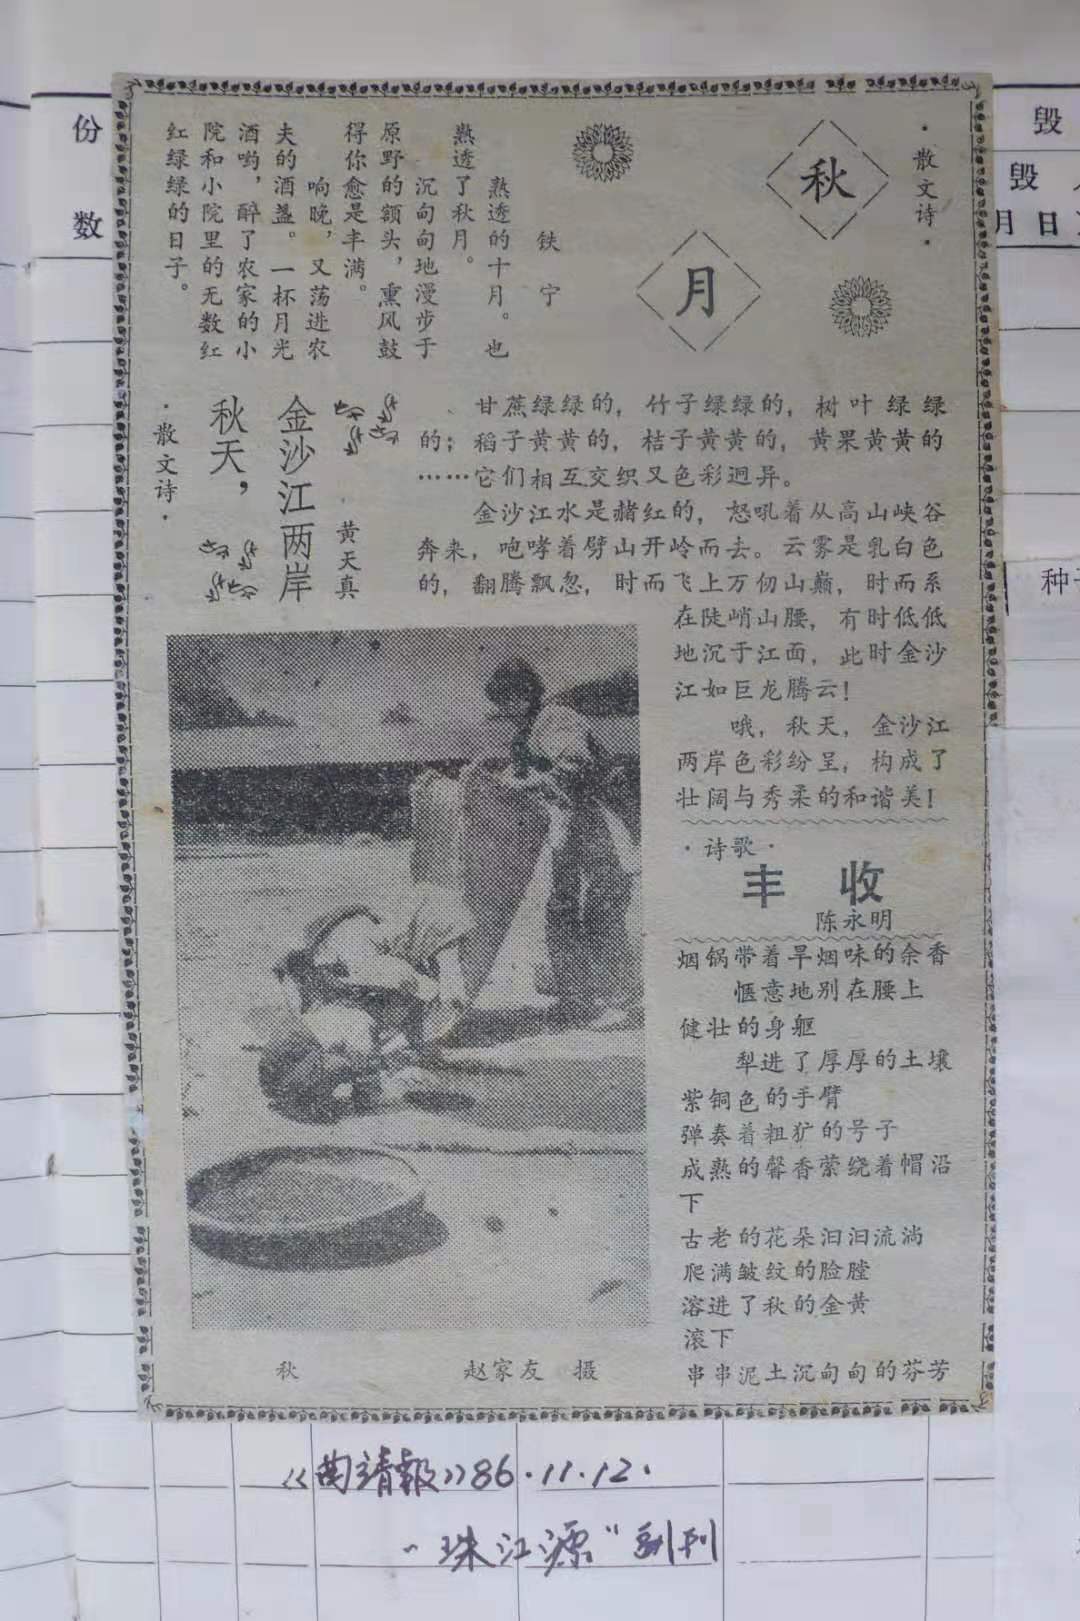 份数
毁
毁
月日
种
·散文诗·
秋月
铁宁
熟透的十月。也
熟透了秋月。
沉甸甸地漫步于
原野的额头，熏风鼓
得你愈是丰满。
响晚，又荡进农
夫的酒盏。一杯月光
酒哟，醉了农家的小
院和小院里的无数红
红绿绿的日子。
·散文诗·
秋天，
金沙江两岸
黄天真
甘蔗绿绿的，竹子绿绿的，树叶绿绿
的；稻子黄黄的，桔子黄黄的，黄果黄黄的
……它们相互交织又色彩迥异。
金沙江水是赭红的，怒吼着从高山峡谷
奔来，咆哮着劈山开岭而去。云雾是乳白色
的，翻腾飘忽，时而飞上万仞山巅，时而系
在陡峭山腰，有时低低
地沉于江面，此时金沙
江如巨龙腾云！
哦，秋天，金沙江
两岸色彩纷呈，构成了
壮阔与秀柔的和谐美！
·诗歌·
丰收
陈永明
烟锅带着旱烟味的余香
惬意地别在腰上
健壮的身躯
犁进了厚厚的土壤
紫铜色的手臂
弹奏着粗犷的号子
成熟的馨香萦绕着帽沿
下
古老的花朵汩汩流淌
爬满皱纹的脸膛
溶进了秋的金黄
滚下
串串泥土沉甸甸的芬芳
秋 赵家友 摄
《曲靖報》86.11.12.
“珠江源”副刊